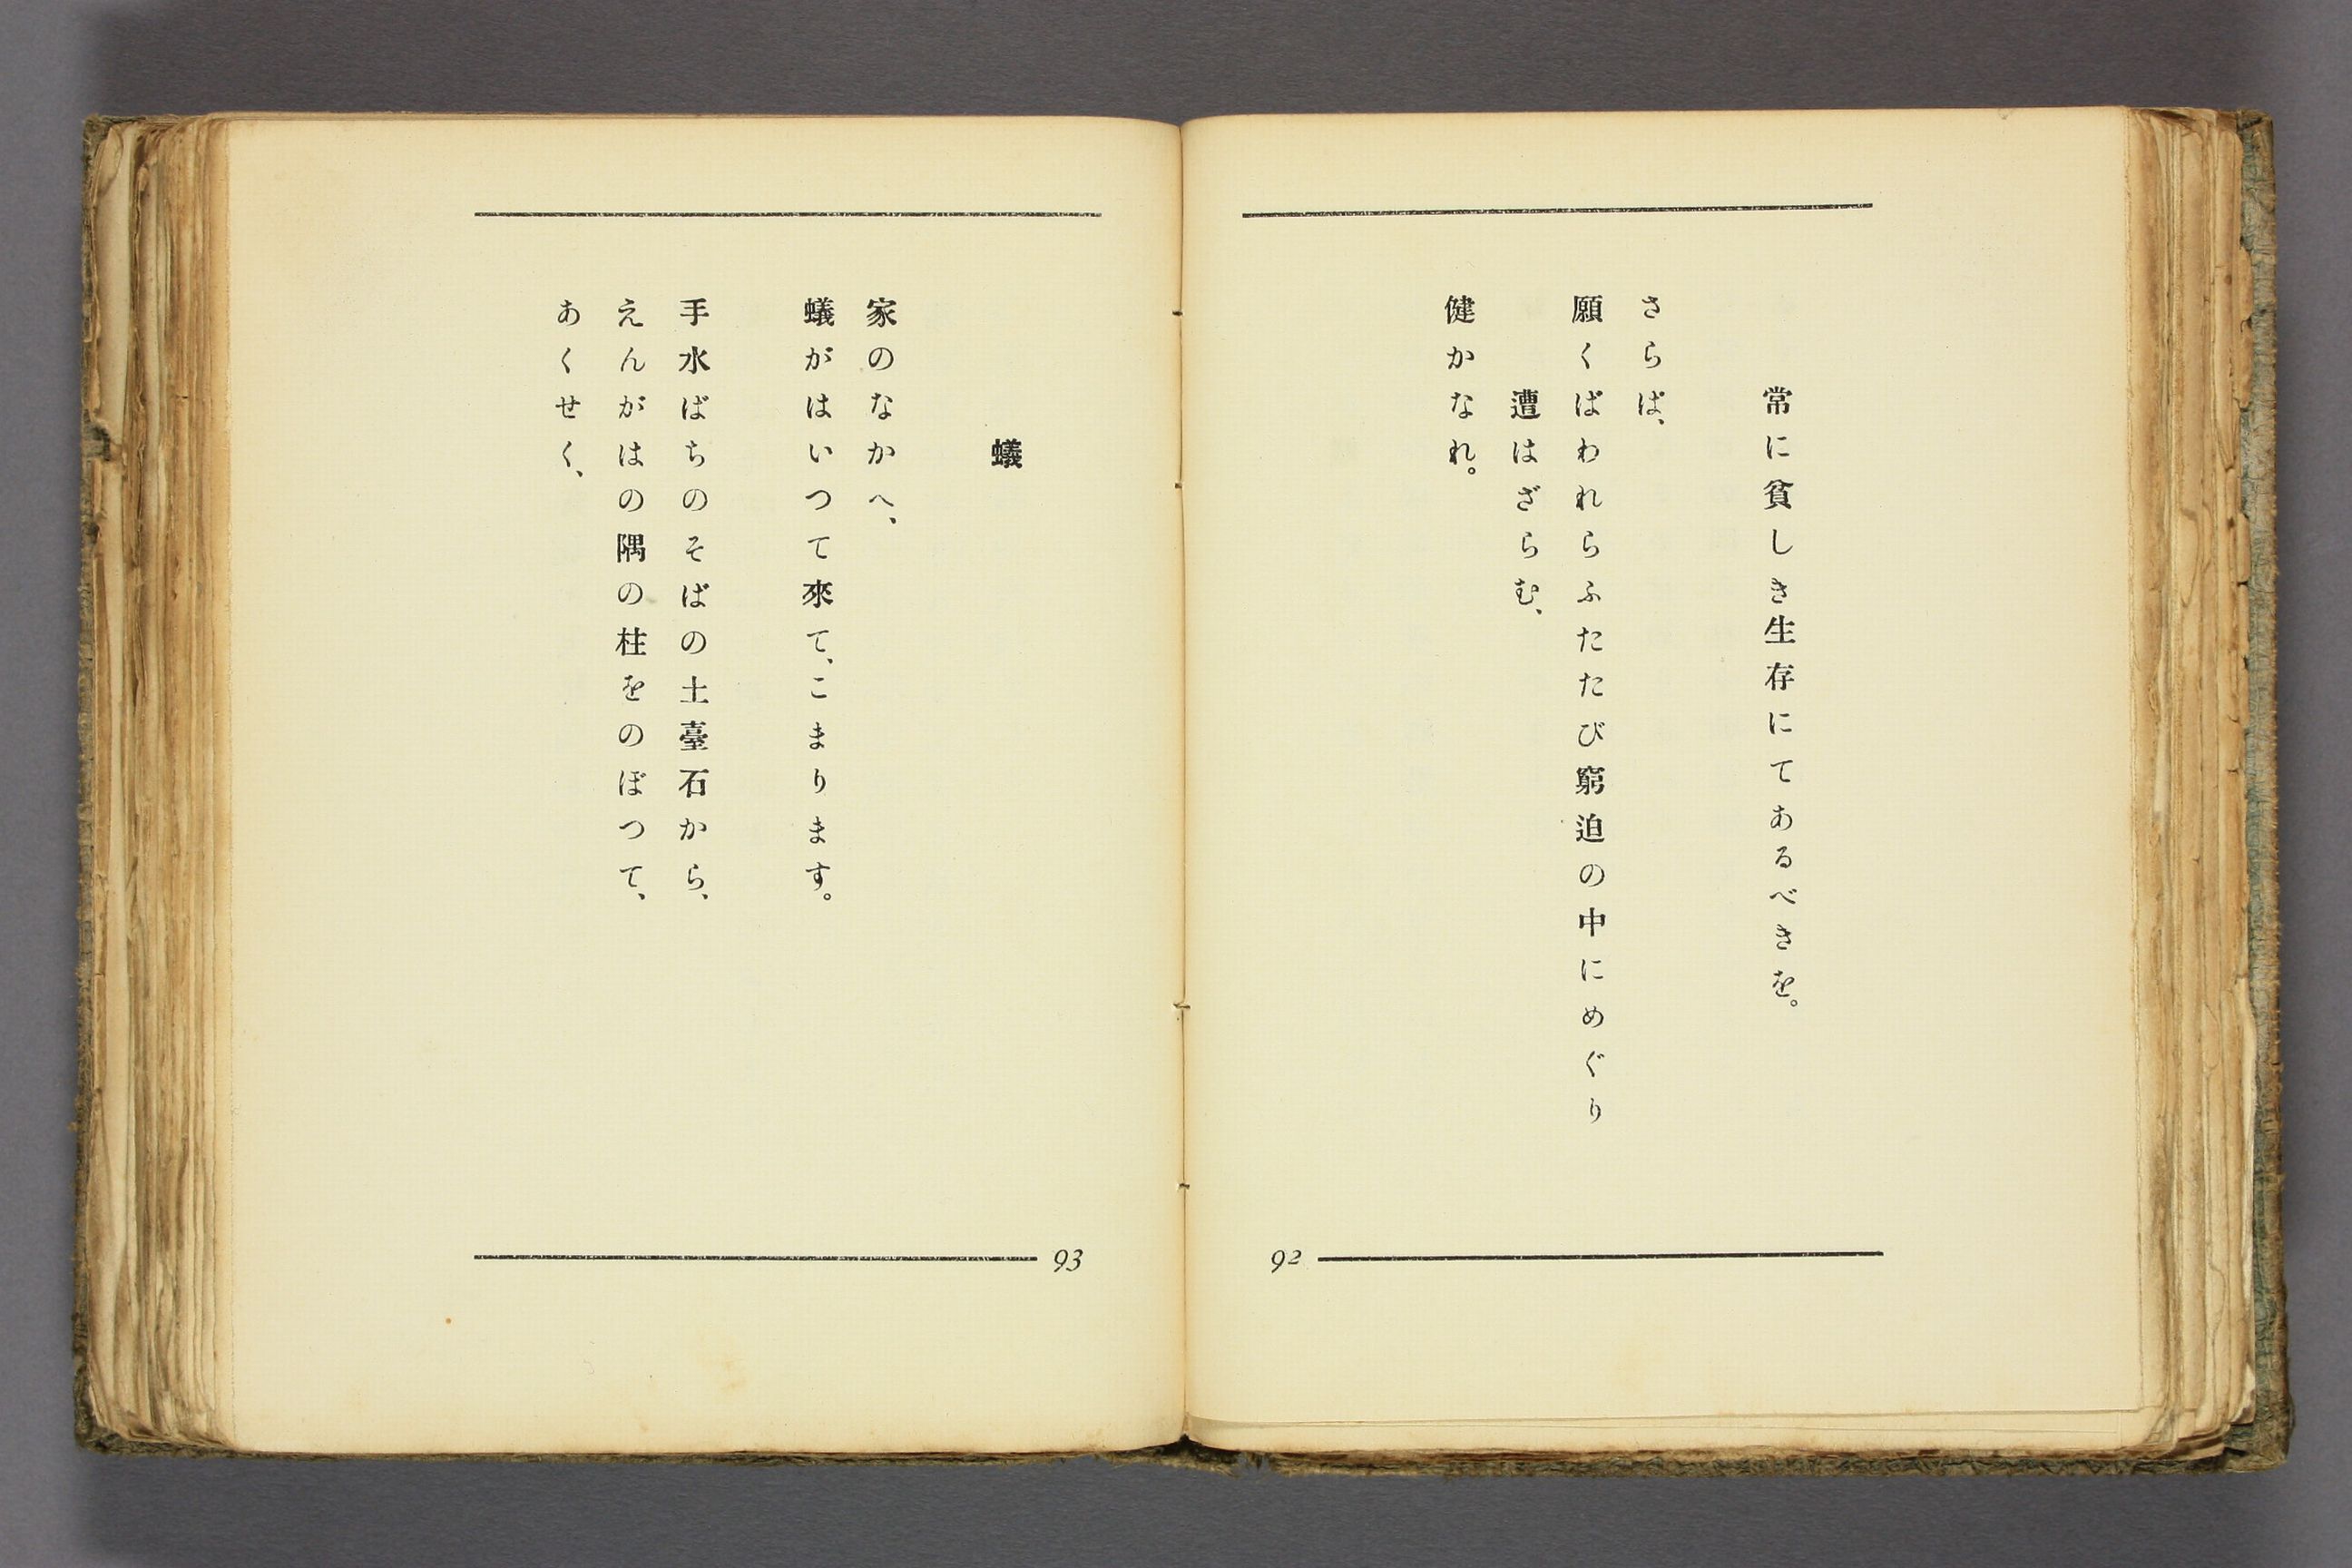 常に貧しき生存にてあるべきを。
さらば、
願くばわれらふたたび窮迫の中にめぐり
遭はざらむ、
健かなれ。
92
蟻
家のなかへ、
蟻がはいつて來て、こまります。
手水ばちのそばの土臺石から、
えんがはの隅の柱をのぼつて、
あくせく、
93